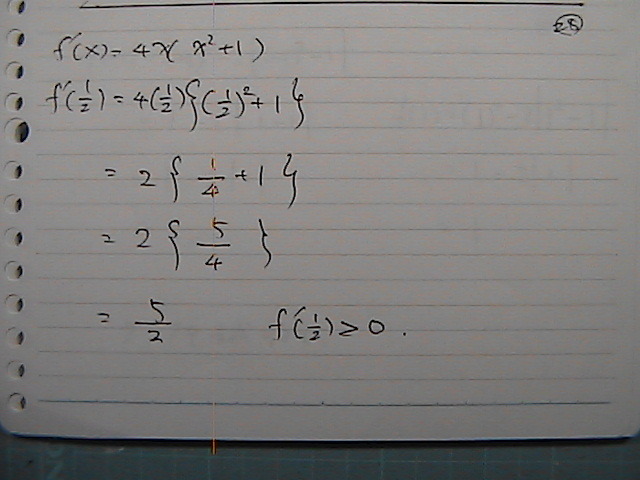 28
f'(x) = 4x(x²+1)
f'(1/2) = 4(1/2){(1/2)²+1}
= 2{1/4+1}
= 2{5/4}
= 5/2 f'(1/2) ≥ 0.